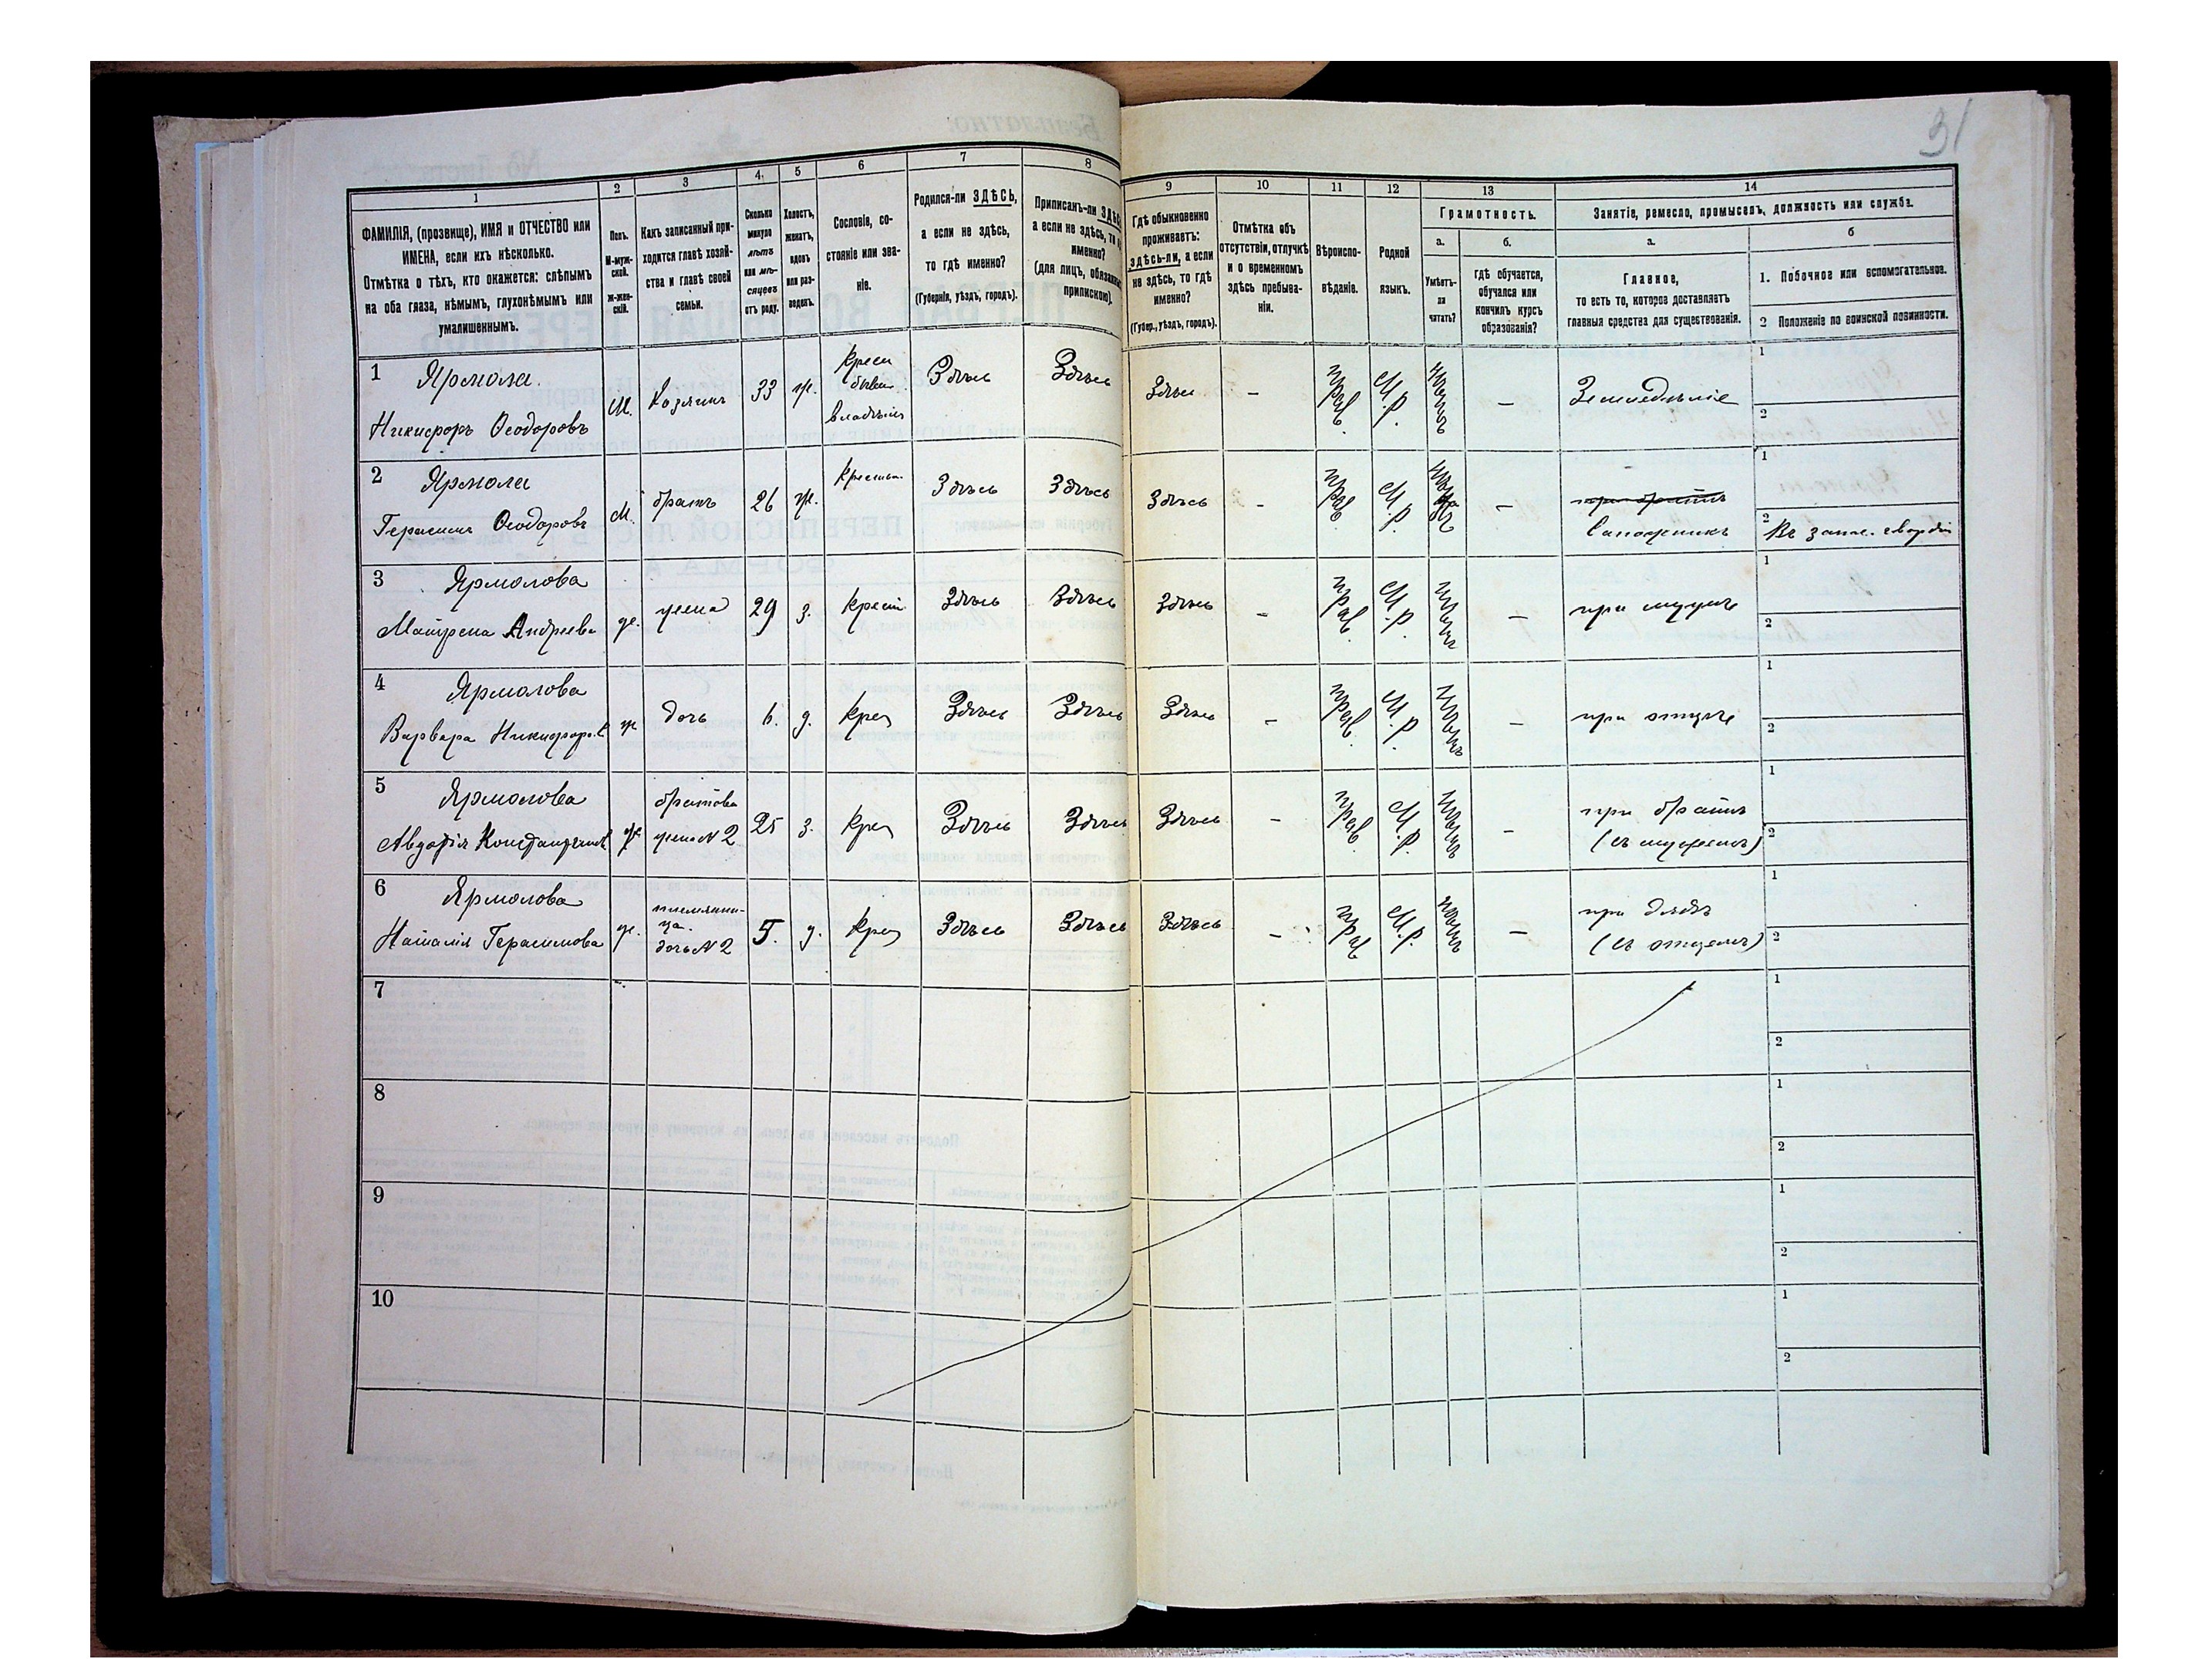 31
1 2 3 4. 5 6 7 8 9 10 11 12 13 14
ФАМИЛІЯ, (прозвище), ИМЯ и ОТЧЕСТВО или
ИМЕНА, если ихъ нѣсколько.
Отмѣтка о тѣхъ, кто окажется: слѣпымъ
на оба глаза, нѣмымъ, глухонѣмымъ или
умалишеннымъ.
Полъ.
М-муж-
ской.
Ж-жен-
скій.
Какъ записанный при-
ходится главѣ хозяй-
ства и главѣ своей
семьи.
Сколько
минуло
лѣтъ
или мѣ-
сяцевъ
отъ роду.
Холостъ,
женатъ,
вдовъ
или раз-
веденъ.
Сословіе, со-
стояніе или зва-
ніе.
Родился-ли ЗДѢСЬ,
а если не здѣсь,
то гдѣ именно?
(Губернія, уѣздъ, городъ).
Приписанъ-ли
а если не здѣсь,
именно?
(для лицъ,
припискою).
Гдѣ обыкновенно
проживаетъ:
здѣсь-ли, а если
не здѣсь, то гдѣ
именно?
(Губер., уѣздъ, городъ).
Отмѣтка объ
отсутствіи, отлучкѣ
и о временномъ
здѣсь пребыва-
ніи.
Вѣроиспо-
вѣданіе.
Родной
языкъ.
Грамотность.
а.
Умѣетъ-
ли
читать?
б.
гдѣ обучается,
обучался или
кончилъ курсъ
образованія?
Занятіе, ремесло, промыселъ, должность или служба.
а.
Главное,
то есть то, которое доставляетъ
главныя средства для существованія.
б
1. Побочное или вспомогательное.
2 Положеніе по воинской повинности.
1 Ярмола
Никифоръ Ѳеодоровъ
М. Хозяинъ 33 ж. Здѣсь Здѣсь Здѣсь – прав. М.р. – Земледѣліе
1
2
2 Ярмола
Герасимъ Ѳеодоровъ
М. братъ 26 ж. Здѣсь Здѣсь Здѣсь – прав. М.р. –
при братѣ
Сапожникъ
1
2
3 Ярмолова
Матрена Андреева
ж. жена 29 з. Крест Здѣсь Здѣсь Здѣсь – прав. М.р. – при мужѣ
1
2
4 Ярмолова
Варвара Никифоров
ж дочь 6. д. Крес Здѣсь Здѣсь Здѣсь – прав. М.р. – при отцѣ
1
2
5 Ярмолова
Авдотія Константинов
ж. братова
жена N 2
25 з. Крес Здѣсь Здѣсь Здѣсь – прав. М.р. –
при братѣ
(съ мужемъ)
1
2
6 Ярмолова
Наталія Герасимова
ж. племянни-
ца.
дочь N 2
5. д. Крес Здѣсь Здѣсь Здѣсь – прав М.р. –
при дядѣ
(съ отцемъ)
1
2
7
1
2
8
1
2
9
1
2
10
1
2